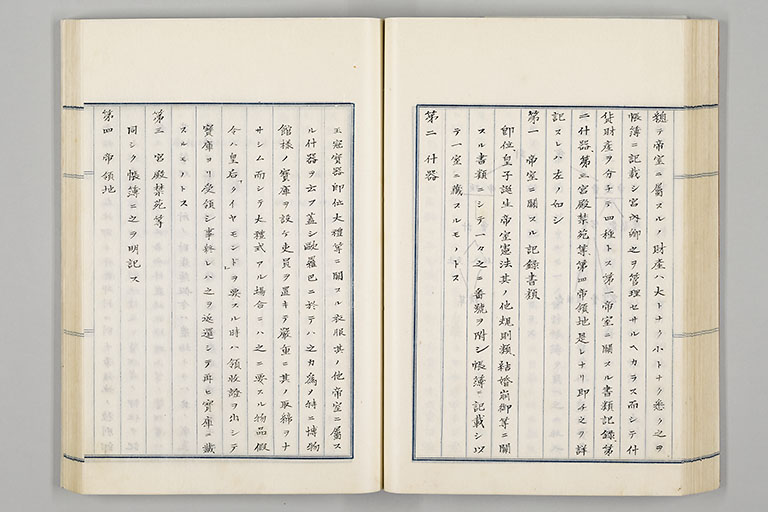 総テ帝室ニ屬スルノ財産ハ大トナク小トナク悉ク之ヲ
帳簿ニ記載シ宮内卿之ヲ管理セサルヘカラス而シテ什
貨財産ヲ分チテ四種トス第一帝室ニ關スル書類記録第
二什器、第三宮殿禁苑等、第四帝領地是レナリ即チ之ヲ詳
記スレハ左ノ如シ
第一 帝室ニ關スル記録書類
即位、皇子誕生帝室憲法其ノ他規則類、結婚崩御等ニ關
スル書類ニシテ一々之ニ番號ヲ附シ帳簿ニ記載シ以
テ一室ニ藏スルモノトス
第二 什器
王冠寶器即位大禮等ニ關スル衣服其ノ他帝室ニ屬ス
ル什器ヲ云フ蓋シ歐羅巴ニ於テハ之カ為メ特ニ博物
館様ノ寶庫ヲ設ケ吏員ヲ置キテ嚴重ニ其ノ取締ヲナ
サシム而シテ大禮式アル場合ニハ之ニ要スル物品假
令ハ皇后「ダイヤモンド」ヲ要スル時ハ領收證ヲ出シテ
寶庫ヨリ受領シ事終レハ之ヲ返還シテ再ヒ寶庫ニ藏
スルモノトス
第三 宮殿禁苑等
同シク帳簿ニ之ヲ明記ス
第四 帝領地